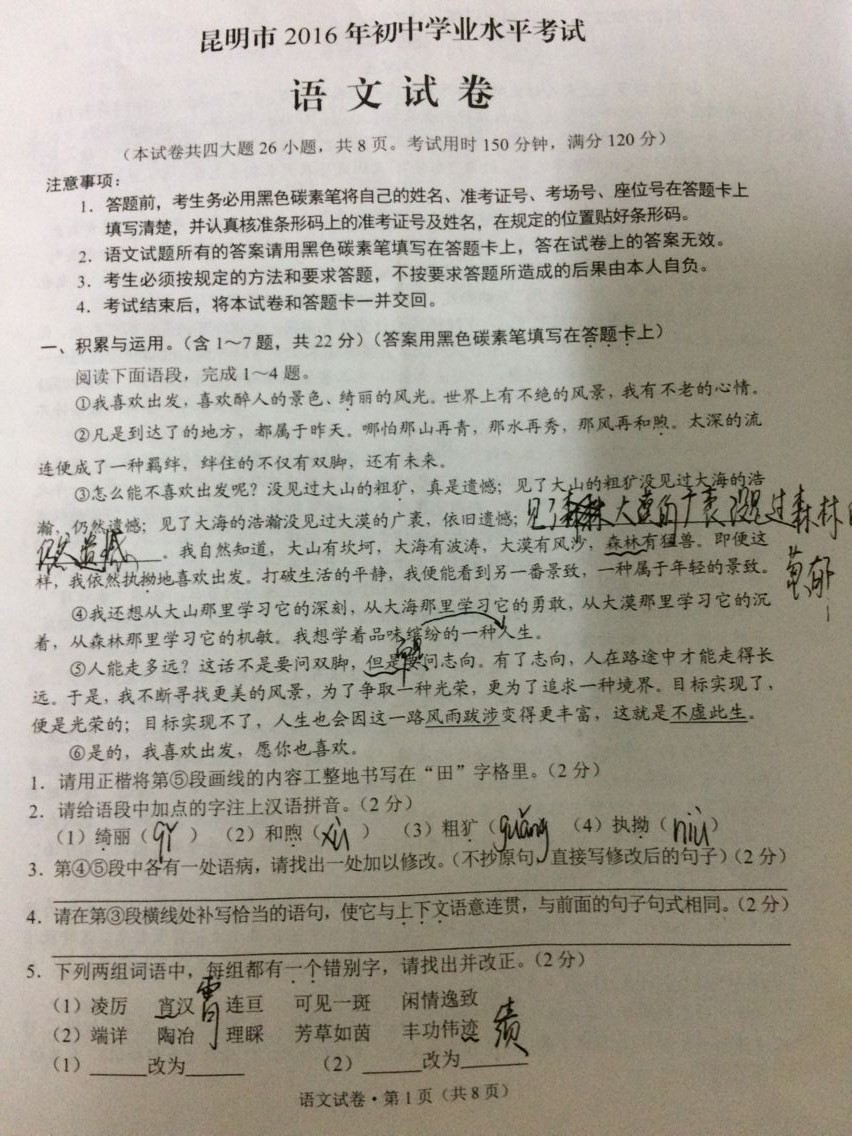 昆明市2016年初中学业水平考试
语文试卷
（本试卷共四大题26小题，共8页。考试用时150分钟，满分120分）
注意事项：
1．答题前，考生务必用黑色碳素笔将自己的姓名、准考证号、考场号、座位号在答题卡上
填写清楚，并认真核准条形码上的准考证号及姓名，在规定的位置贴好条形码。
2．语文试题所有的答案请用黑色碳素笔填写在答题卡上，答在试卷上的答案无效。
3．考生必须按规定的方法和要求答题，不按要求答题所造成的后果由本人自负。
4．考试结束后，将本试卷和答题卡一并交回。
一、积累与运用。（含1～7题，共22分）（答案用黑色碳素笔填写在答题卡上）
阅读下面语段，完成1～4题。
①我喜欢出发，喜欢醉人的景色、绮丽的风光。世界上有不绝的风景，我有不老的心情。
②凡是到达了的地方，都属于昨天。哪怕那山再青，那水再秀，那风再和煦。太深的流
连便成了一种羁绊，绊住的不仅有双脚，还有未来。
③怎么能不喜欢出发呢？没见过大山的粗犷，真是遗憾；见了大山的粗犷没见过大海的浩
瀚，仍然遗憾；见了大海的浩瀚没见过大漠的广袤，依旧遗憾；见了大漠的广袤没见过森林的
仍然遗憾。我自然知道，大山有坎坷，大海有波涛，大漠有风沙，森林有猛兽。即便这
样，我依然执拗地喜欢出发。打破生活的平静，我便能看到另一番景致，一种属于年轻的景致。
葱郁
④我还想从大山那里学习它的深刻，从大海那里学习它的勇敢，从大漠那里学习它的沉
着，从森林那里学习它的机敏。我想学着品味缤纷的一种人生。
⑤人能走多远？这话不是要问双脚，但是要问志向。有了志向，人在路途中才能走得长
远。于是，我不断寻找更美的风景，为了争取一种光荣，更为了追求一种境界。目标实现了，
便是光荣的；目标实现不了，人生也会因这一路风雨跋涉变得更丰富，这就是不虚此生。
⑥是的，我喜欢出发，愿你也喜欢。
1．请用正楷将第⑤段画线的内容工整地书写在“田”字格里。（2分）
2．请给语段中加点的字注上汉语拼音。（2分）
（1）绮丽（qǐ）（2）和煦（xù）（3）粗犷（guǎng）（4）执拗（niù）
3．第④⑤段中各有一处语病，请找出一处加以修改。（不抄原句，直接写修改后的句子）（2分）
4．请在第③段横线处补写恰当的语句，使它与上下文语意连贯，与前面的句子句式相同。（2分）
5．下列两组词语中，每组都有一个错别字，请找出并改正。（2分）
（1）凌厉 宵汉 霄 连亘 可见一斑 闲情逸致
（2）端详 陶冶 理睬 芳草如茵 丰功伟迹 绩
（1）______改为______ （2）______改为______
语文试卷·第1页（共8页）